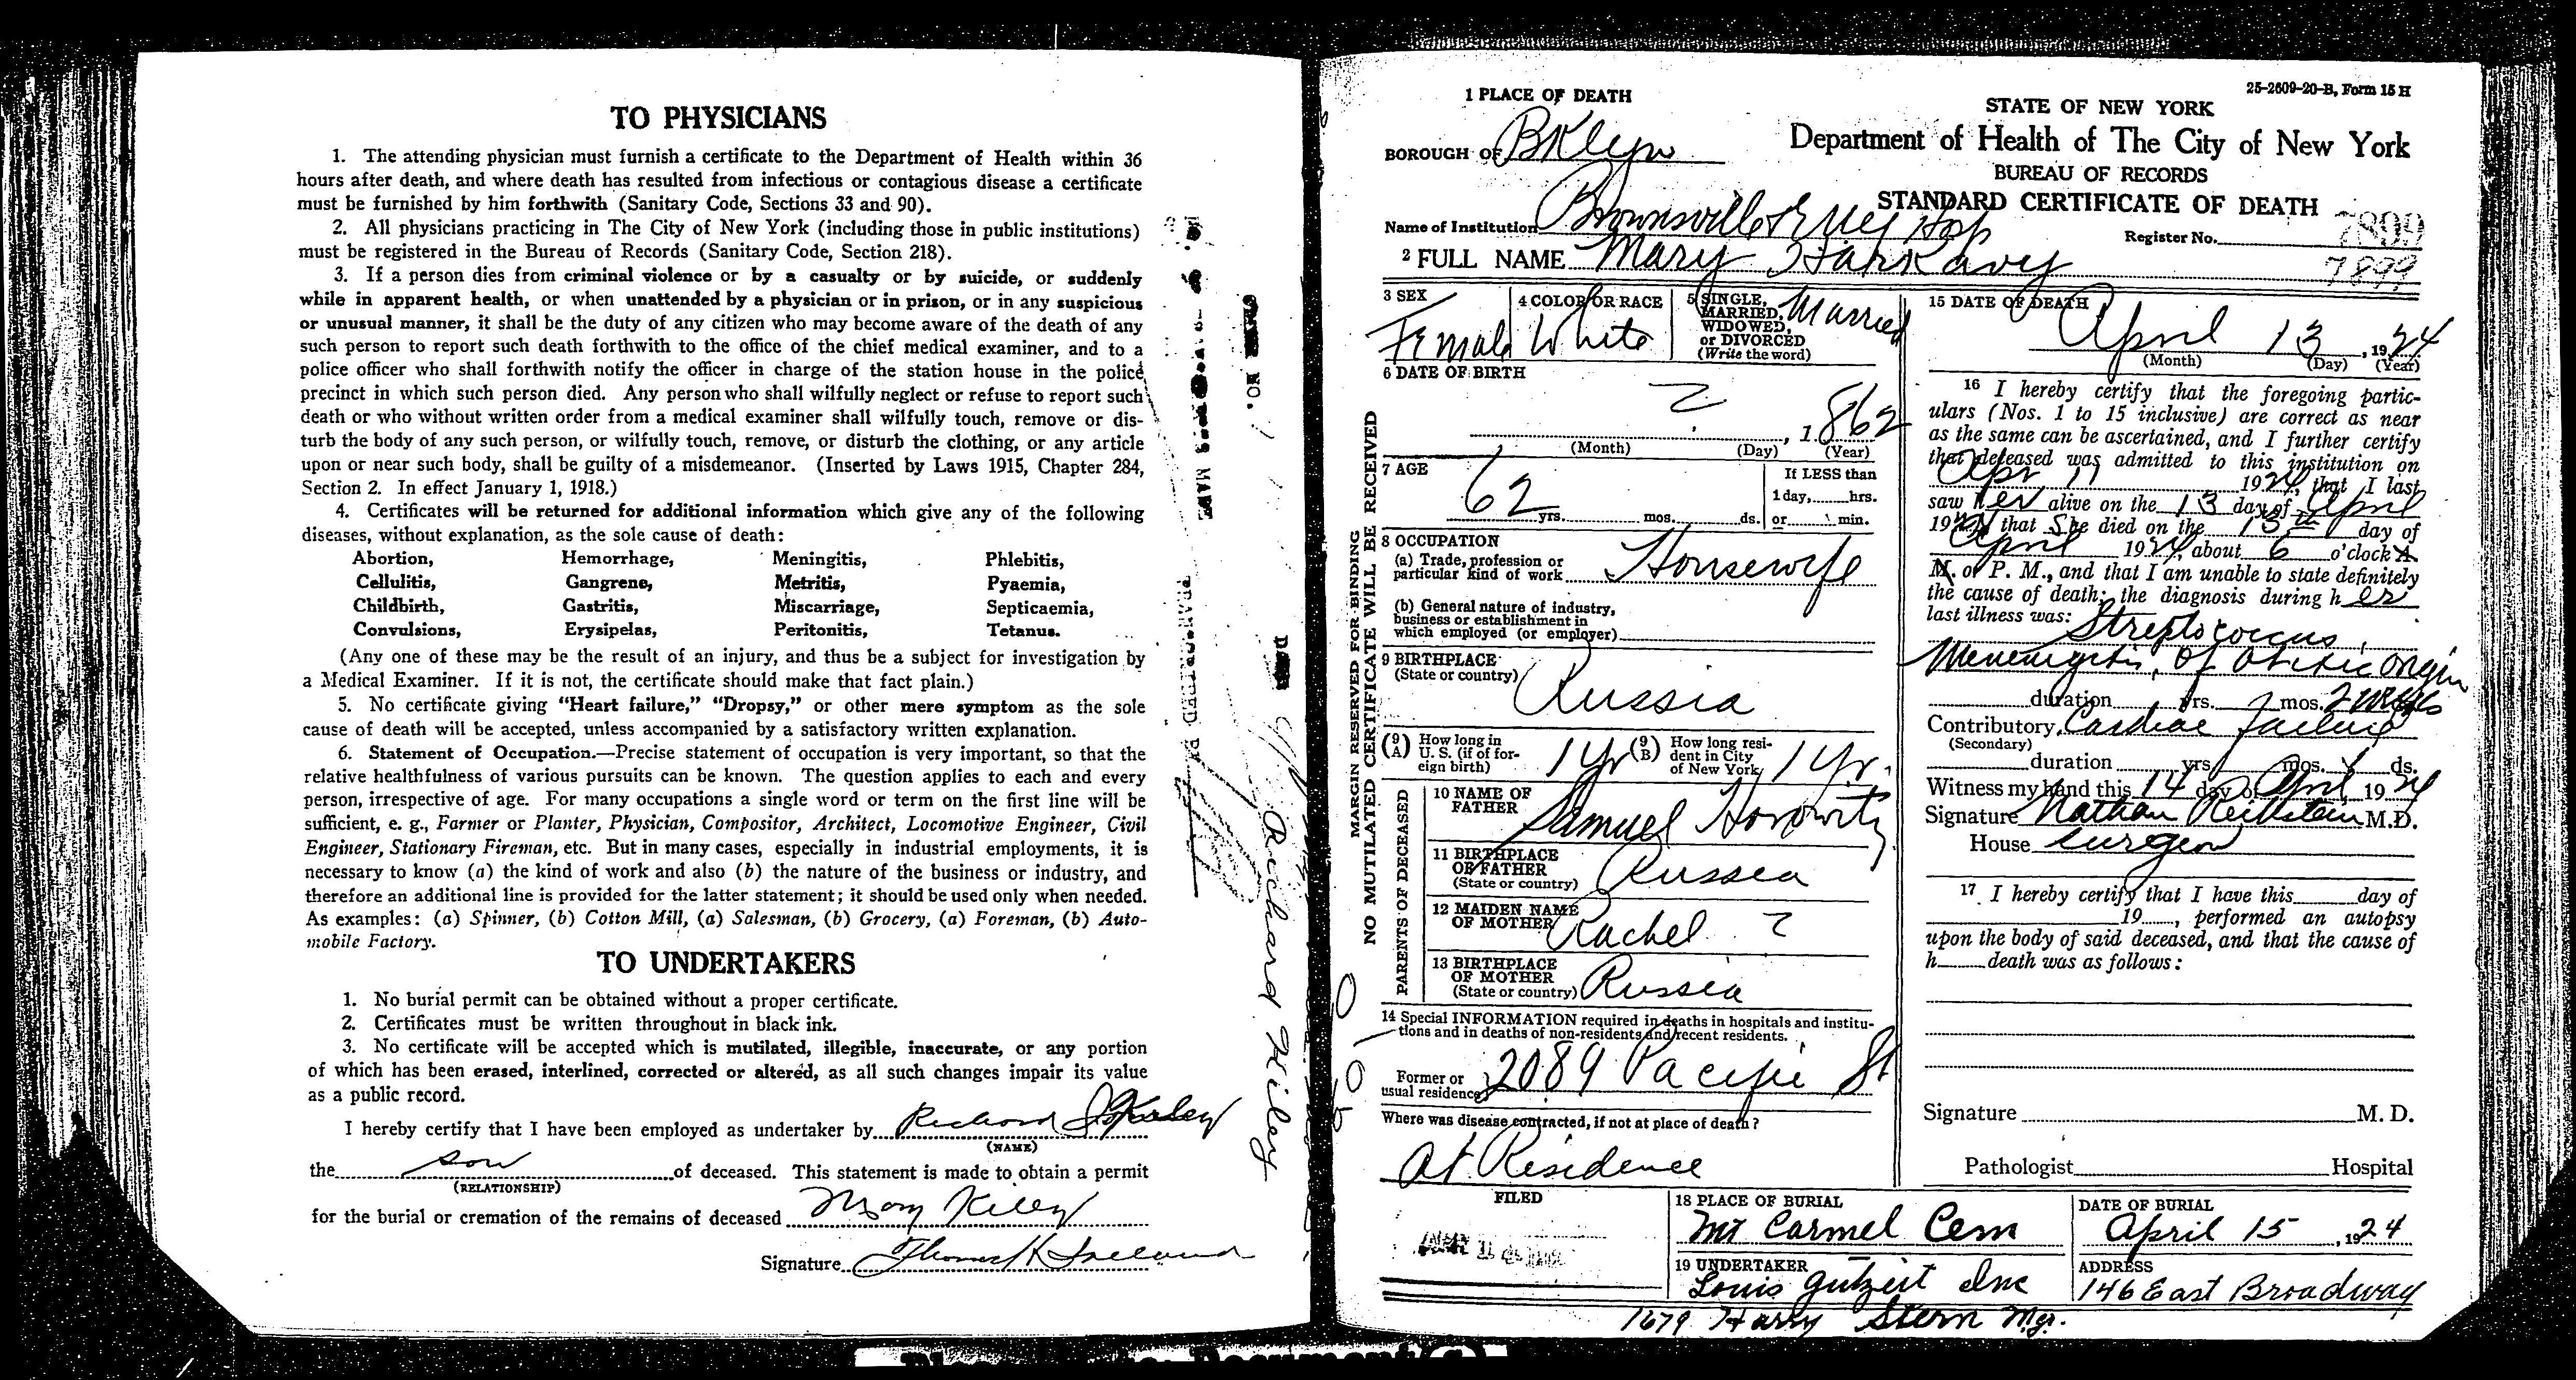 TO PHYSICIANS
1. The attending physician must furnish a certificate to the Department of Health within 36
hours after death, and where death has resulted from infectious or contagious disease a certificate
must be furnished by him forthwith (Sanitary Code, Sections 33 and 90).
2. All physicians practicing in The City of New York (including those in public institutions)
must be registered in the Bureau of Records (Sanitary Code, Section 218).
3. If a person dies from criminal violence or by a casualty or by suicide, or suddenly
while in apparent health, or when unattended by a physician or in prison, or in any suspicious
or unusual manner, it shall be the duty of any citizen who may become aware of the death of any
such person to report such death forthwith to the office of the chief medical examiner, and to a
police officer who shall forthwith notify the officer in charge of the station house in the police
precinct in which such person died. Any person who shall wilfully neglect or refuse to report such
death or who without written order from a medical examiner shall wilfully touch, remove or dis-
turb the body of any such person, or wilfully touch, remove, or disturb the clothing, or any article
upon or near such body, shall be guilty of a misdemeanor. (Inserted by Laws 1915, Chapter 284,
Section 2. In effect January 1, 1918.)
4. Certificates will be returned for additional information which give any of the following
diseases, without explanation, as the sole cause of death:
Abortion, Hemorrhage, Meningitis, Phlebitis,
Cellulitis, Gangrene, Metritis, Pyaemia,
Childbirth, Gastritis, Miscarriage, Septicaemia,
Convulsions, Erysipelas, Peritonitis, Tetanus.
(Any one of these may be the result of an injury, and thus be a subject for investigation by
a Medical Examiner. If it is not, the certificate should make that fact plain.)
5. No certificate giving “Heart failure,” “Dropsy,” or other mere symptom as the sole
cause of death will be accepted, unless accompanied by a satisfactory written explanation.
6. Statement of Occupation.—Precise statement of occupation is very important, so that the
relative healthfulness of various pursuits can be known. The question applies to each and every
person, irrespective of age. For many occupations a single word or term on the first line will be
sufficient, e. g., Farmer or Planter, Physician, Compositor, Architect, Locomotive Engineer, Civil
Engineer, Stationary Fireman, etc. But in many cases, especially in industrial employments, it is
necessary to know (a) the kind of work and also (b) the nature of the business or industry, and
therefore an additional line is provided for the latter statement; it should be used only when needed.
As examples: (a) Spinner, (b) Cotton Mill, (a) Salesman, (b) Grocery, (a) Foreman, (b) Auto-
mobile Factory.
TO UNDERTAKERS
1. No burial permit can be obtained without a proper certificate.
2. Certificates must be written throughout in black ink.
3. No certificate will be accepted which is mutilated, illegible, inaccurate, or any portion
of which has been erased, interlined, corrected or altered, as all such changes impair its value
as a public record.
I hereby certify that I have been employed as undertaker by Richard Kiley
(NAME)
the son of deceased. This statement is made to obtain a permit
(RELATIONSHIP)
for the burial or cremation of the remains of deceased Mary Kiley
Signature Thomas K Ireland
Richard Kiley
MARGIN RESERVED FOR BINDING
NO MUTILATED CERTIFICATE WILL BE RECEIVED
25-2609-20-B, Form 15 H
1 PLACE OF DEATH
STATE OF NEW YORK
Department of Health of The City of New York
BUREAU OF RECORDS
STANDARD CERTIFICATE OF DEATH
BOROUGH OF BKlyn
Name of Institution Brownsville & Hosp
Register No. 7899
7899
2 FULL NAME Mary Harkavy
3 SEX Female
4 COLOR OR RACE White
5 SINGLE, MARRIED, WIDOWED, or DIVORCED (Write the word) Married
6 DATE OF BIRTH
? , 1862
(Month) (Day) (Year)
7 AGE
62 yrs. mos. ds.
If LESS than
1 day, hrs.
or min.
8 OCCUPATION
(a) Trade, profession or
particular kind of work Housewife
(b) General nature of industry,
business or establishment in
which employed (or employer)
9 BIRTHPLACE
(State or country) Russia
(9 A) How long in U. S. (if of foreign birth) 1 Yr
(9 B) How long resident in City of New York 1 Yr.
PARENTS OF DECEASED
10 NAME OF FATHER Samuel Horowitz
11 BIRTHPLACE OF FATHER (State or country) Russia
12 MAIDEN NAME OF MOTHER Rachel ?
13 BIRTHPLACE OF MOTHER (State or country) Russia
14 Special INFORMATION required in deaths in hospitals and institu-
tions and in deaths of non-residents and recent residents.
Former or
usual residence 2089 Pacific St
Where was disease contracted, if not at place of death?
at Residence
FILED
15 DATE OF DEATH
April 13, 1924
(Month) (Day) (Year)
16 I hereby certify that the foregoing partic-
ulars (Nos. 1 to 15 inclusive) are correct as near
as the same can be ascertained, and I further certify
that deceased was admitted to this institution on
Apr 11 1924, that I last
saw her alive on the 13 day of April
1924 that She died on the 13th day of
April 1924, about 6 o'clock A.
M. or P. M., and that I am unable to state definitely
the cause of death; the diagnosis during her
last illness was: Streptococcus
Menengitis, of otitic origin
duration yrs. mos. 2 wks
Contributory Cardiac failure
(Secondary)
duration yrs. mos. ds.
Witness my hand this 14 day of April, 1924
Signature Nathan M.D.
House Surgeon
17 I hereby certify that I have this day of
19 , performed an autopsy
upon the body of said deceased, and that the cause of
h death was as follows:
Signature M. D.
Pathologist Hospital
18 PLACE OF BURIAL
Mt Carmel Cem
DATE OF BURIAL
April 15, 1924
19 UNDERTAKER
Louis Gutzeit Inc
ADDRESS
146 East Broadway
1679 Harry Stern Mgr.